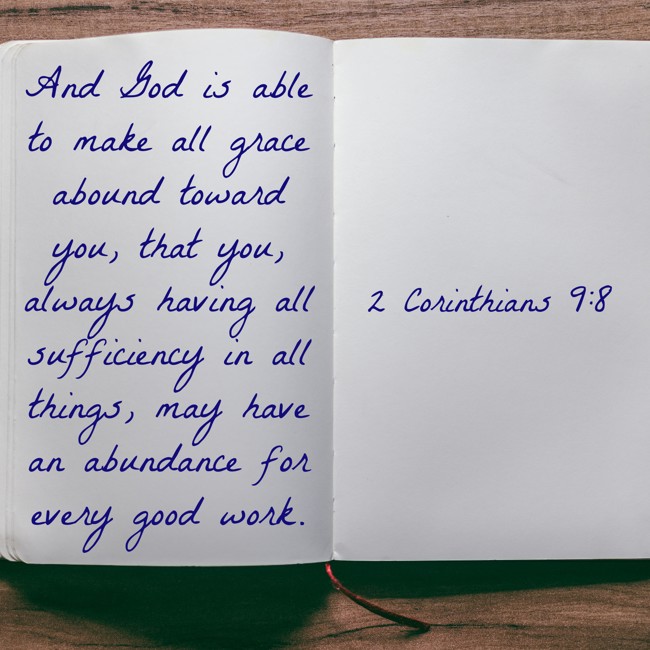 And God is able
to make all grace
abound toward
you, that you,
always having all
sufficiency in all
things, may have
an abundance for
every good work.
2 Corinthians 9:8